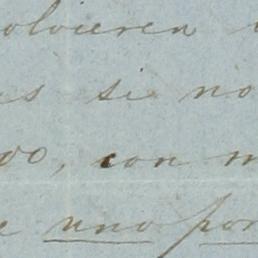 olvieren
us si no
do, con m
e uno por